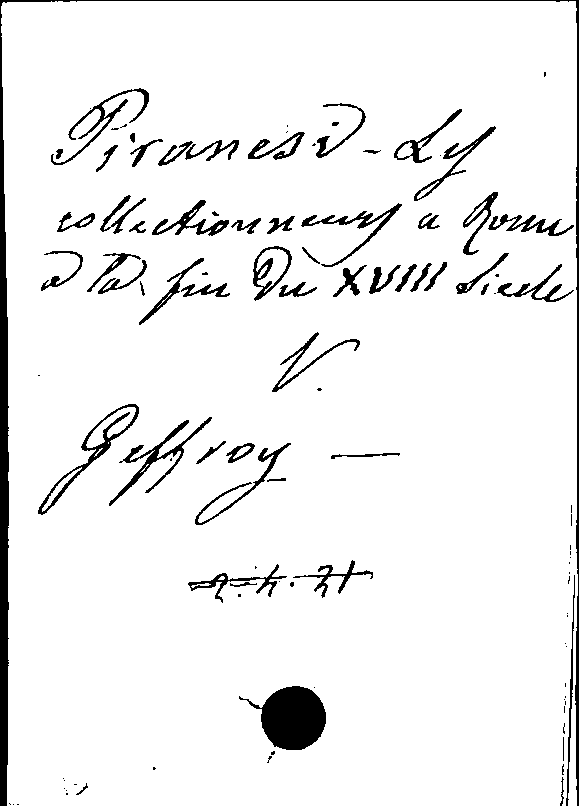 Piranesi - Ly
collectionneurs a Rome
a la fin du XVIII Siecle
V.
Geffroy —